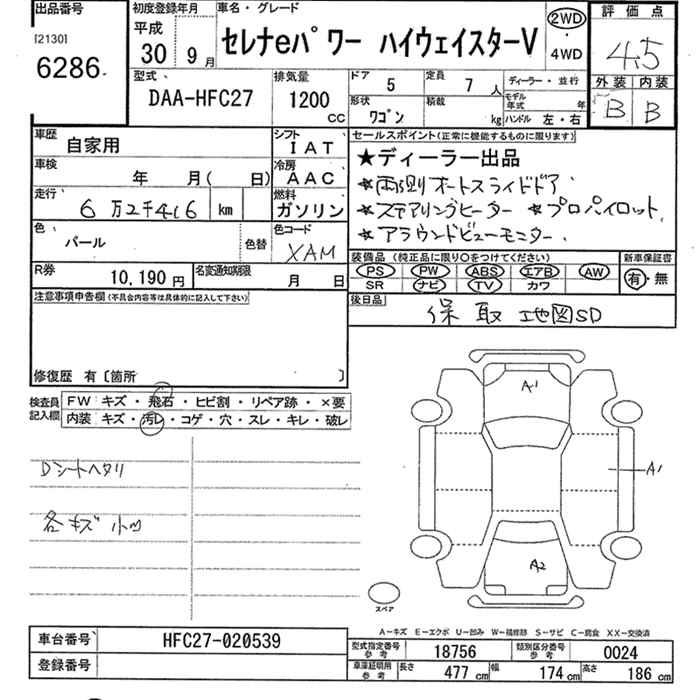 出品番号
[2130]
6286
初度登録年月
平成
30年 9月
車名・グレード
セレナeパワー ハイウェイスターV
2WD
・
4WD
評価点
4.5
外装 内装
B B
型式
DAA-HFC27
排気量
1200 CC
ドア 5 定員 7 人
形状 ワゴン 積載 kg
ディーラー・並行
モデル年式 年
ハンドル 左・右
車歴 自家用
シフト IAT
車検 年 月( 日)
冷房 AAC
走行 6万2千416 km
燃料 ガソリン
色 パール 色替
色コード XAM
R券 10,190 円
名変通知期限 月 日
セールスポイント(正常に機能するものに限ります)
★ディーラー出品
★両側オートスライドドア
★ステアリングヒーター ★プロパイロット
★アラウンドビューモニター
装備品 (純正品に限り○をつけてください)
PS PW ABS エアB AW
SR ナビ TV カワ
新車保証書
有・無
後日品
保 取 地図SD
注意事項申告欄(不具合内容等は具体的に記入して下さい)
修復歴 有〔箇所 〕
検査員記入欄
FW キズ・飛石・ヒビ割・リペア跡・×要
内装 キズ・汚レ・コゲ・穴・スレ・キレ・破レ
Dシートヘタリ
各キズ小凹
A1
A1
A2
スペア
A-キズ E-エクボ U-凹み W-補修跡 S-サビ C-腐食 XX-交換済
車台番号 HFC27-020539
登録番号
型式指定番号 参考 18756
類別区分番号 参考 0024
車庫証明用 参考 長さ 477 cm 幅 174 cm 高さ 186 cm